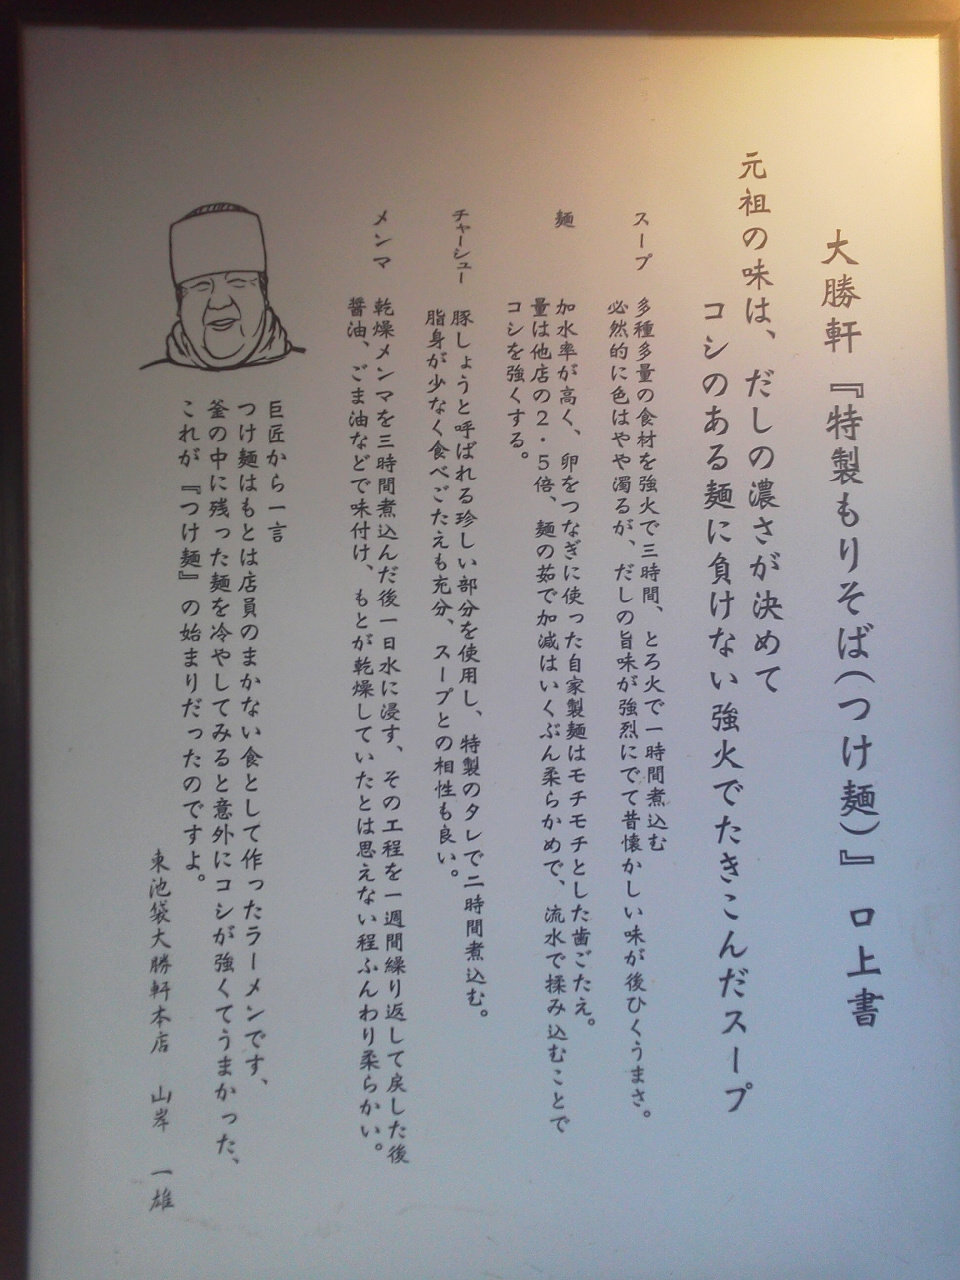 大勝軒『特製もりそば(つけ麺)』口上書
元祖の味は、だしの濃さが決めて
コシのある麺に負けない強火でたきこんだスープ
スープ 多種多量の食材を強火で三時間、とろ火で一時間煮込む
必然的に色はやや濁るが、だしの旨味が強烈にでて昔懐かしい味が後ひくうまさ。
麺 加水率が高く、卵をつなぎに使った自家製麺はモチモチとした歯ごたえ。
量は他店の2・5倍、麺の茹で加減はいくぶん柔らかめで、流水で揉み込むことで
コシを強くする。
チャーシュー 豚しょうと呼ばれる珍しい部分を使用し、特製のタレで二時間煮込む。
脂身が少なく食べごたえも充分、スープとの相性も良い。
メンマ 乾燥メンマを三時間煮込んだ後一日水に浸す、その工程を一週間繰り返して戻した後
醤油、ごま油などで味付け、もとが乾燥していたとは思えない程ふんわり柔らかい。
巨匠から一言
つけ麺はもとは店員のまかない食として作ったラーメンです、
釜の中に残った麺を冷やしてみると意外にコシが強くてうまかった、
これが『つけ麺』の始まりだったのですよ。
東池袋大勝軒本店 山岸 一雄